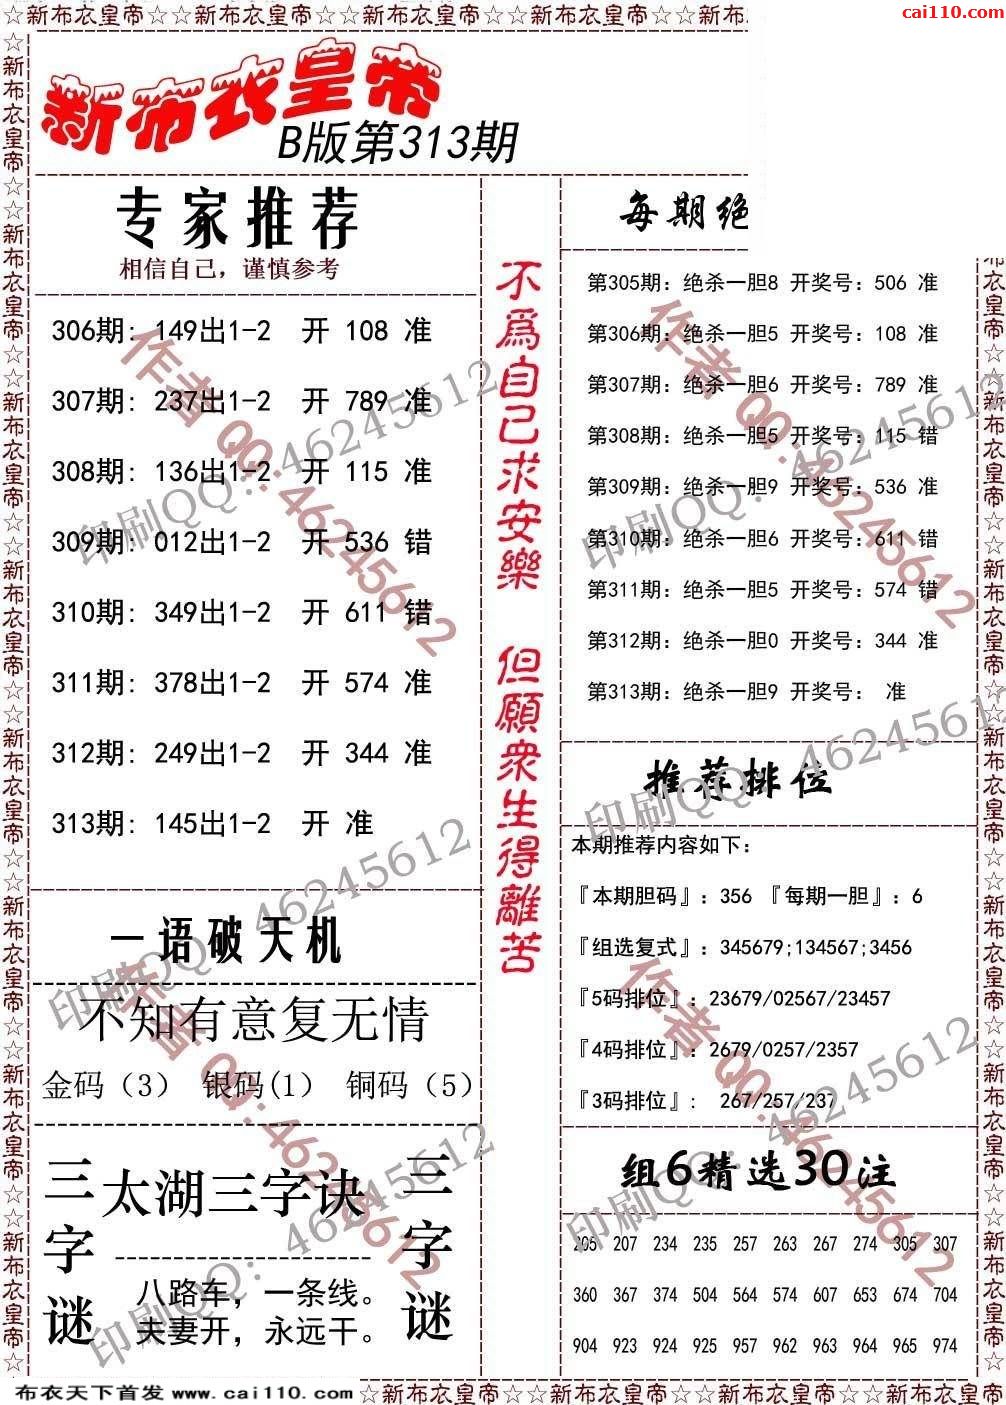 ☆新布衣皇帝☆新布衣皇帝☆新布衣皇帝☆新布衣皇帝☆新布衣皇帝☆新布
cai110.com
新布衣皇帝
B版第313期
专家推荐
相信自己，谨慎参考
306期：149出1-2 开 108 准
307期：237出1-2 开 789 准
308期：136出1-2 开 115 准
309期：012出1-2 开 536 错
310期：349出1-2 开 611 错
311期：378出1-2 开 574 准
312期：249出1-2 开 344 准
313期：145出1-2 开 准
一语破天机
不知有意复无情
金码（3） 银码(1） 铜码（5）
三字谜
太湖三字诀
八路车，一条线。
夫妻开，永远干。
三字谜
不為自己求安樂 但願衆生得離苦
每期绝
第305期：绝杀一胆8 开奖号：506 准
第306期：绝杀一胆5 开奖号：108 准
第307期：绝杀一胆6 开奖号：789 准
第308期：绝杀一胆5 开奖号：115 错
第309期：绝杀一胆9 开奖号：536 准
第310期：绝杀一胆6 开奖号：611 错
第311期：绝杀一胆5 开奖号：574 错
第312期：绝杀一胆0 开奖号：344 准
第313期：绝杀一胆9 开奖号： 准
推荐排位
本期推荐内容如下：
『本期胆码』：356 『每期一胆』：6
『组选复式』：345679;134567;3456
『5码排位』：23679/02567/23457
『4码排位』：2679/0257/2357
『3码排位』： 267/257/237
组6精选30注
205 207 234 235 257 263 267 274 305 307
360 367 374 504 564 574 607 653 674 704
904 923 924 925 957 962 963 964 965 974
作者QQ:46245612
印刷QQ：46245612
作者QQ:46245612
印刷QQ：46245612
印刷QQ：46245612
印刷QQ：46245612
作者QQ:46245612
作者QQ:46245612
印刷QQ：46245612
印刷QQ：46245612
☆新布衣皇帝☆☆新布衣皇帝☆☆新布衣皇帝☆☆新布衣皇帝☆☆新布衣皇帝☆☆新布衣皇帝☆☆新布衣皇帝☆☆新布衣皇帝☆
布衣天下首发 www.cai110.com ☆新布衣皇帝☆新布衣皇帝☆新布衣皇帝☆新布衣皇帝☆